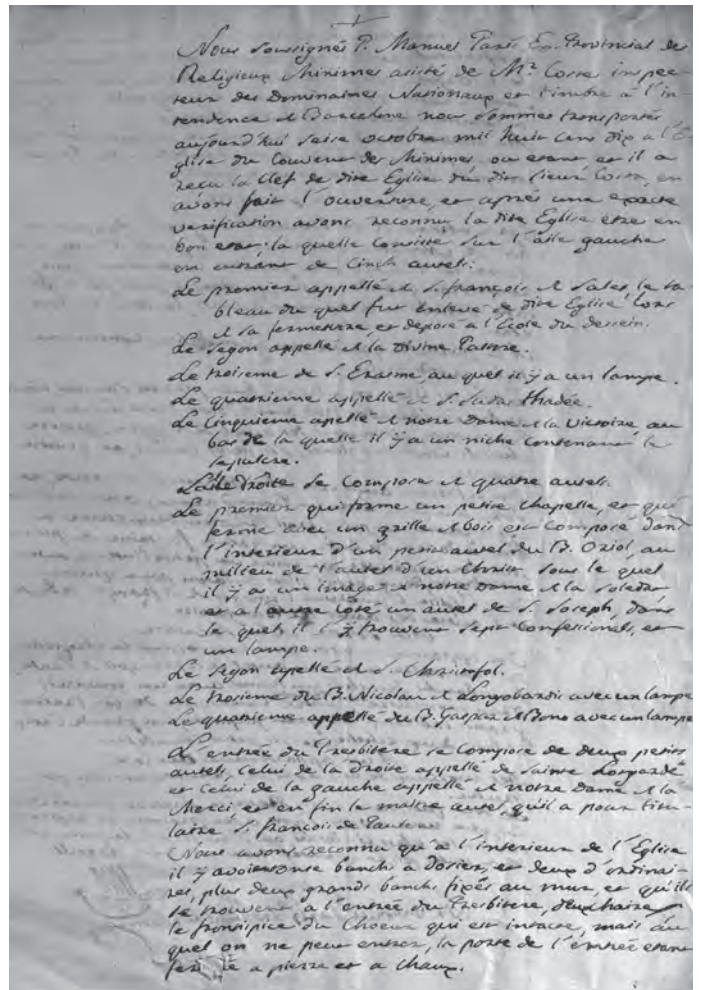 Nous soussignés P. Manuel Parés Ex-Provincial des
Religieux Minimes asisté de Mr. Costa inspec-
teur des Dominaines Nationaux et timbre à l'in-
tendence de Barcelone nous sommes transportés
aujourd'hui seise octobre mil huit cens dix a l'E-
glise du Couvent des Minimes, ou etant et il a
reçu la Clef de dite Eglise du dit sieur Costa, en
avons fait l'ouverture, et aprés una exacte
verification avons reconnu la dite Eglise etre en
bon etat; la quelle consiste sur l'aile gauche
en entrant de Cinch autels.
Le premier appellé de S. françois de Sales le ta-
bleau du quel fut enlevé de dite Eglise lors
de sa fermeture, et deposé a l'Ecole du dessein.
Le segon appellé de la Divine Pastore.
Le troiseme de S. Erasme, au quel il y a un lampe.
Le quatrieme appellé de S. Judas thadée.
Le Cinquieme apellé de notre Dame de la Victoire, au
bas de la quelle il y a un niche contenant le
sepulcre.
L'aile droite se compose de quatre autels.
Le premier qui forme un petite Chapelle, et qui
ferme avec un grille de bois est composé dans
l'interieur d'un petit autel du B. Oriol, au
milieu de l'autel d'un Christ sous le quel
il y a un image de notre Dame de la Soledat
et a l'autre coté un autel de S. Joseph, dans
la quel il s'y trouvent sept Confessionels, et
un lampe.
Le segon apellé de S. Christofol.
Le trosieme du B. Nicolau de Longobardis avec un lampe
Le quatrieme appellé du B. Gaspar de Bono avec un lampe
L'entrée du Presbitere se compose de deux petits
autels, celui de la droite appellé de sainte Losgarde
et celui de la gauche appellé de notre Dame de la
Merci, et en fin le maitre autel, qu'il a pour titu-
laire S. françois de Paule.
Nous avons reconnu qu'a l'interieur de l'Eglise
il y avoit onse banchs a dosier, et deux d'ordinai-
res, plus deux grands banchs fixés au mur, et qu'ils
se trouvent a l'entrée du Presbitere, deux
le fronsispice du Choeur qui est intacte, mais au
quel on ne peut entrer, la porte de l'entrée etant
a pierre et a chaux.